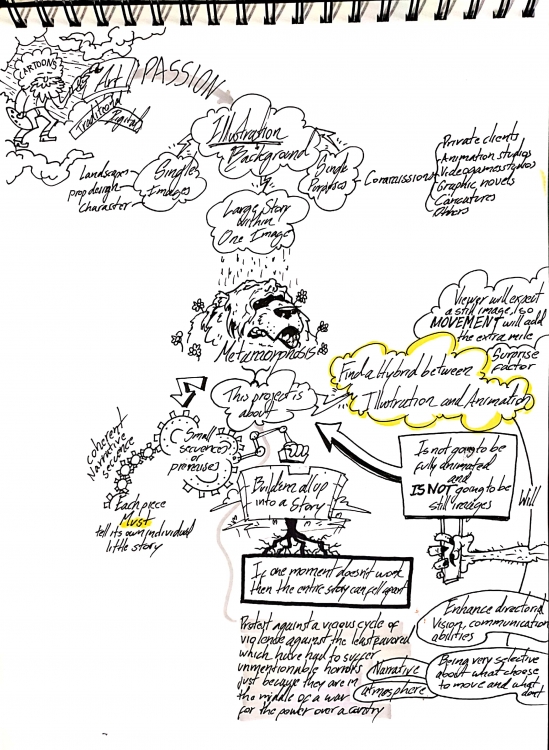 CARTOONS
Art
PASSION
Traditional
Digital
Illustration
Background
Landscape
prop design
Character
Single
Images
Single
Purposes
Commissions
Private clients
Animation studios
Videogames studios
Graphic novels
Caricatures
Others
Large Story
within
One Image
Metamorphosis
Viewer will expect
a still image, so
MOVEMENT will add
the extra mile
Surprise
factor
Find a Hybrid between
Illustration and Animation
This project is
about
Small
sequences
or
premises
Coherent
Narrative
sequence
Each piece
Must
tell its own individual
little story
Build em all up
into a Story
Is not going to be
fully animated
and
IS NOT going to be
still images
Will
If one moment doesn't work
then the entire story can fell apart
Enhance directorial
Vision, communication
abilities
Protest against a vicious cycle of
violence against the least favored
which have had to suffer
unmentionable horrors
just because they are in
the middle of a war
for the power over a country
Narrative
atmosphere
Being very selective
about what choose
to move and what
don't